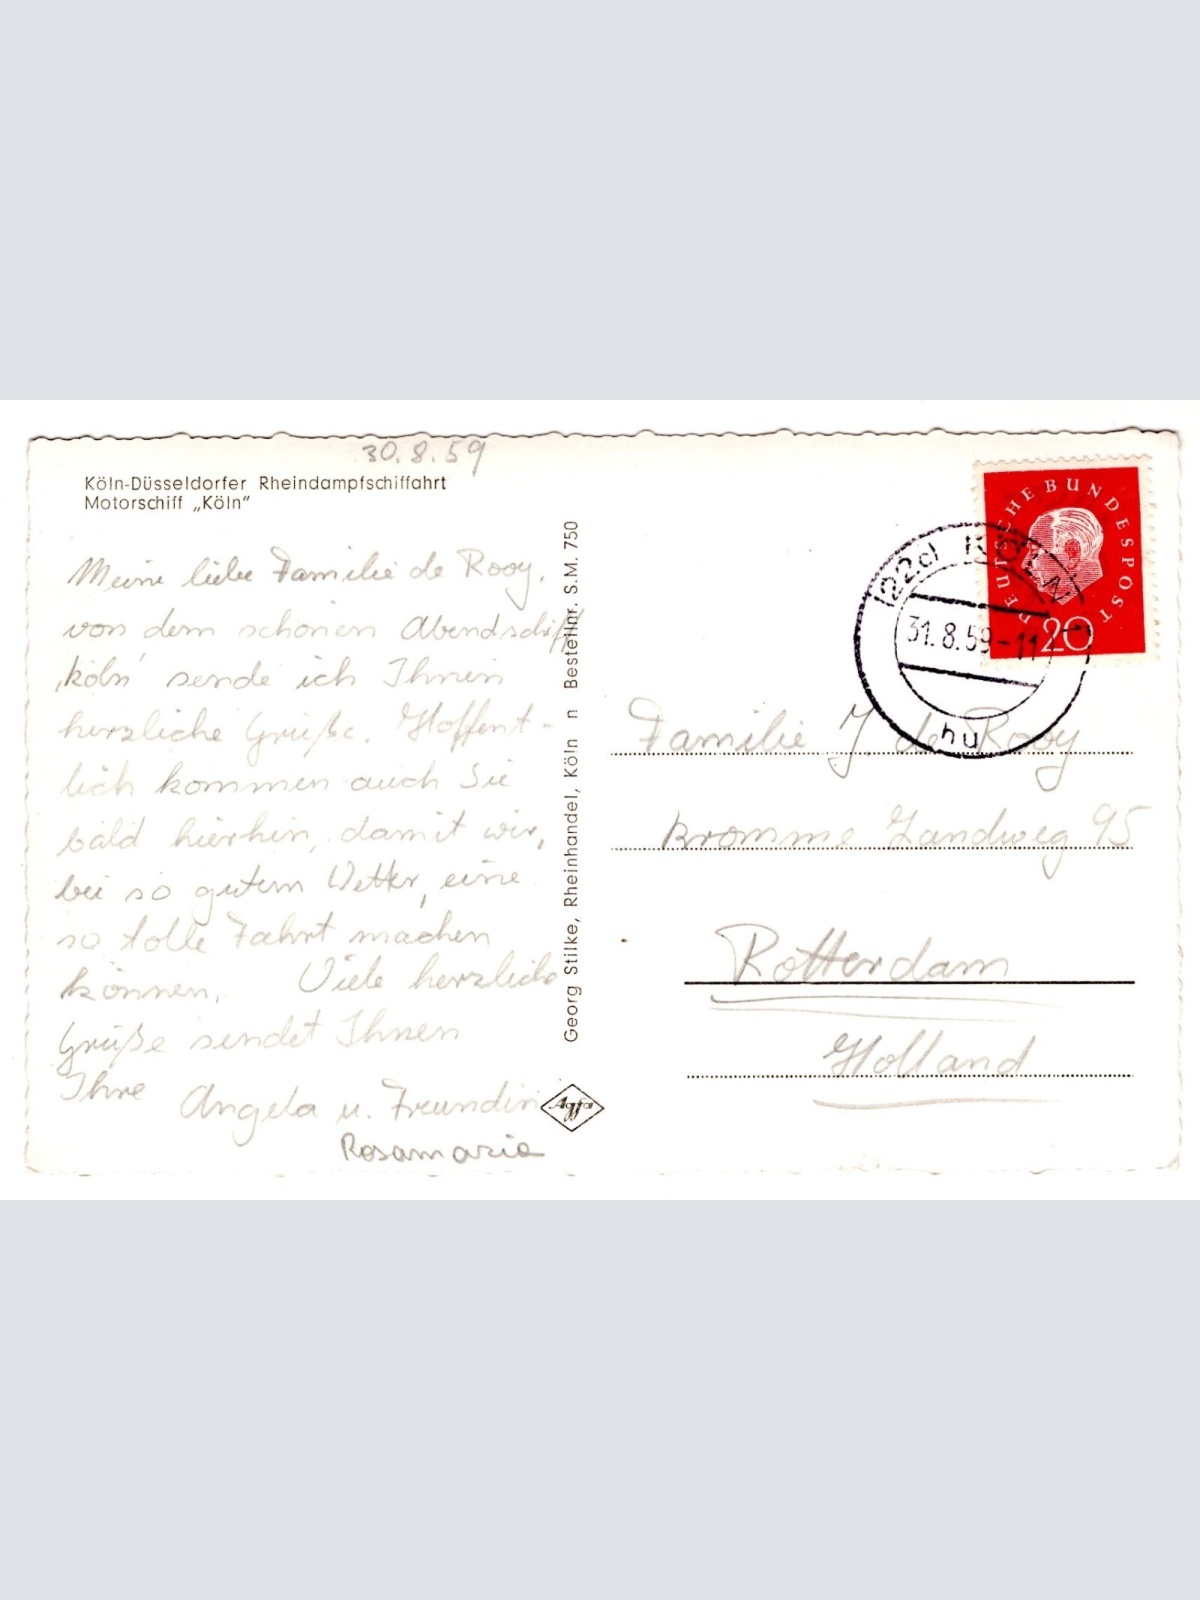 30.8.59
Köln-Düsseldorfer Rheindampfschiffahrt
Motorschiff „Köln"
Meine liebe Familie de Rooy,
von dem schönen Abendschiff
'köln' sende ich Ihnen
herzliche Grüße. Hoffent-
lich kommen auch Sie
bald hierhin, damit wir,
bei so gutem Wetter, eine
so tolle Fahrt machen
können. Viele herzliche
Grüße sendet Ihnen
Ihre Angela u. Freundin
Rosamarie
Georg Stilke, Rheinhandel, Köln n Bestellnr. S.M. 750
Agfa
DEUTSCHE BUNDESPOST
20
(22c) KÖLN
31.8.59-11
hu
Familie J de Rooy
Kromme Zandweg 95
Rotterdam
Holland